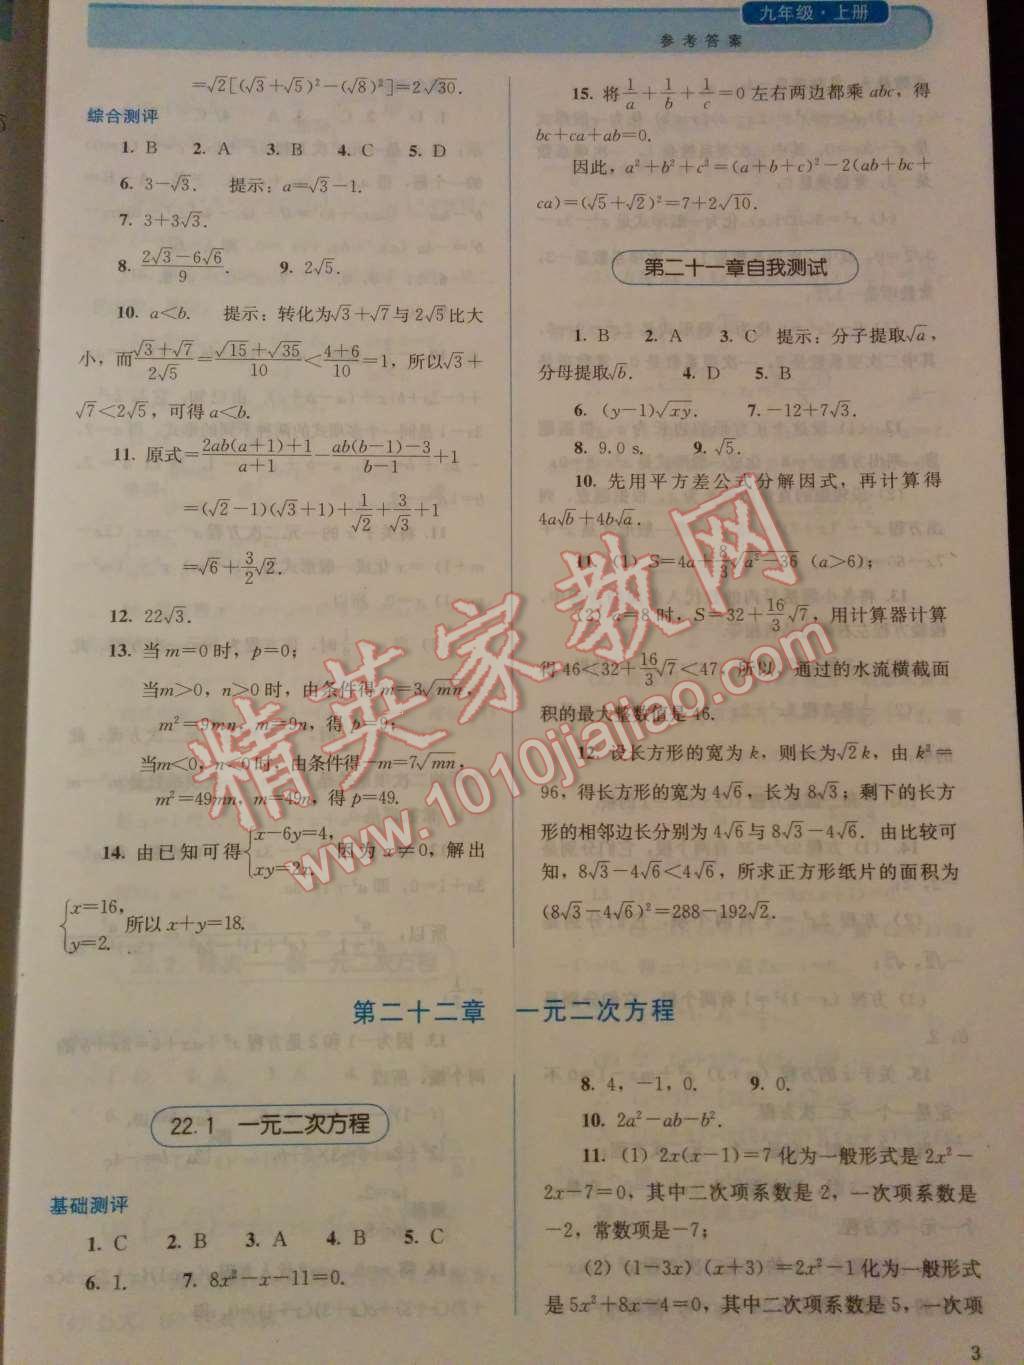 九年级·上册
参考答案
=√2[(√3+√5)²-(√8)²]=2√30.
综合测评
1. B  2. A  3. B  4. C  5. D
6. 3-√3.  提示:a=√3-1.
7. 3+3√3.
8. (2√3-6√6)/9.  9. 2√5.
10. a<b.  提示:转化为√3+√7与2√5比大
小,而(√3+√7)/(2√5)=(√15+√35)/10<(4+6)/10=1,所以√3+
√7<2√5,可得a<b.
11. 原式=(2ab(a+1)+1)/(a+1)-(ab(b-1)-3)/(b-1)+1
=(√2-1)(√3+1)+1/√2+3/√3+1
=√6+3/2√2.
12. 22√3.
13. 当m=0时,p=0;
当m>0,n>0时,由条件得m=3√mn,
m²=9mn,m=9n,得p=9;
当m<0,n<0时,由条件得-m=7√mn,
m²=49mn,m=49n,得p=49.
14. 由已知可得{x-6y=4, xy=2x. 因为x≠0,解出
{x=16, y=2. 所以x+y=18.
15. 将1/a+1/b+1/c=0左右两边都乘abc,得
bc+ca+ab=0.
因此,a²+b²+c²=(a+b+c)²-2(ab+bc+
ca)=(√5+√2)²=7+2√10.
第二十一章自我测试
1. B  2. A  3. C  提示:分子提取√a,
分母提取√b.  4. D  5. B
6. (y-1)√xy.  7. -12+7√3.
8. 9.0 s.  9. √5.
10. 先用平方差公式分解因式,再计算得
4a√b+4b√a.
11. (1) S=4a+8/3√a²-36 (a>6);
(2) a=8时,S=32+16/3√7,用计算器计算
得46<32+16/3√7<47,所以,通过的水流横截面
积的最大整数值是46.
12. 设长方形的宽为k,则长为√2k,由k²=
96,得长方形的宽为4√6,长为8√3;剩下的长方
形的相邻边长分别为4√6与8√3-4√6.由比较可
知,8√3-4√6<4√6,所求正方形纸片的面积为
(8√3-4√6)²=288-192√2.
精英家教网
www.1010jiajiao.com
第二十二章 一元二次方程
22.1 一元二次方程
基础测评
1. C  2. B  3. A  4. B  5. C
6. 1.  7. 8x²-x-11=0.
8. 4,-1,0.  9. 0.
10. 2a²-ab-b².
11. (1) 2x(x-1)=7化为一般形式是2x²-
2x-7=0,其中二次项系数是2,一次项系数是
-2,常数项是-7;
(2) (1-3x)(x+3)=2x²-1化为一般形式
是5x²+8x-4=0,其中二次项系数是5,一次项
3